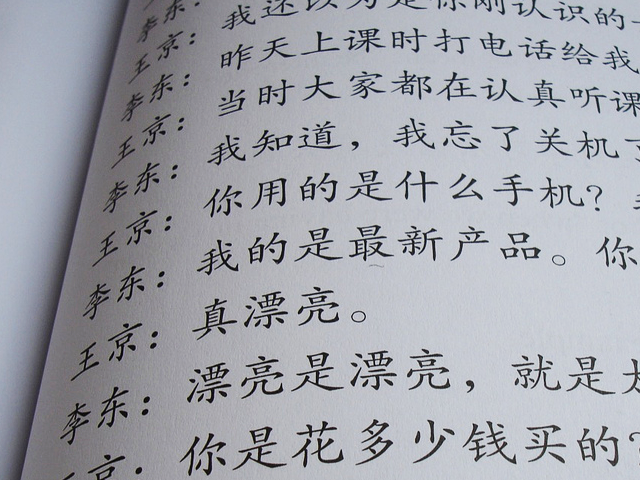 李东：
王京：我还以为是你刚认识的
李东：昨天上课时打电话给我
王京：当时大家都在认真听课
李东：我知道，我忘了关机
王京：你用的是什么手机？
李东：我的是最新产品。你
王京：真漂亮。
李东：漂亮是漂亮，就是
王京：你是花多少钱买的？